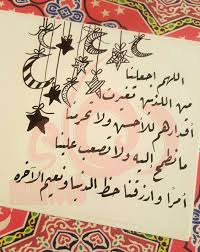 اللهم اجعلنا
من الذين تغيرت
أقدارهم للأحسن ولا تحرمنا
ما نطمح إليه ولا يصعب علينا
أمرا وارزقنا حظ الدنيا ونعيم الآخره